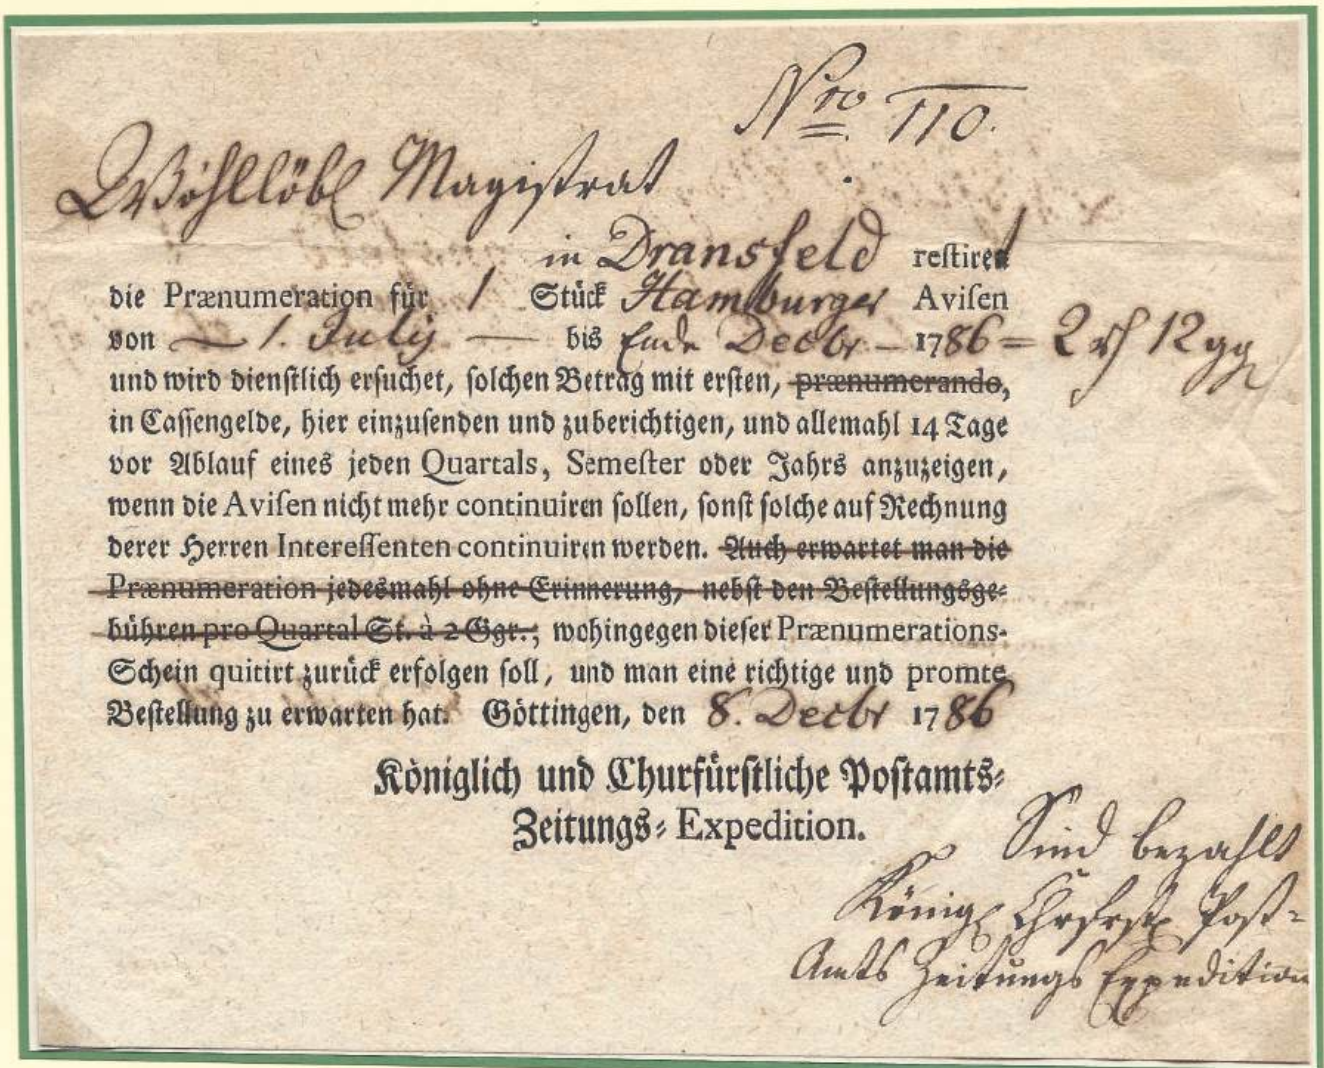 Nro 110.
Wohllöbl Magistrat
in Dransfeld restiret
die Prænumeration für 1 Stück Hamburger Avisen
von 1. July — bis Ende Decbr – 1786 = 2 rh 12 gg
und wird dienstlich ersuchet, solchen Betrag mit ersten, prænumerando,
in Cassengelde, hier einzusenden und zuberichtigen, und allemahl 14 Tage
vor Ablauf eines jeden Quartals, Semester oder Jahrs anzuzeigen,
wenn die Avisen nicht mehr continuiren sollen, sonst solche auf Rechnung
derer Herren Interessenten continuiren werden. Auch erwartet man die
Prænumeration jedesmahl ohne Erinnerung, nebst den Bestellungsge-
bühren pro Quartal St. à 2 Ggr.; wohingegen dieser Prænumerations-
Schein quitirt zurück erfolgen soll, und man eine richtige und promte
Bestellung zu erwarten hat. Göttingen, den 8. Decbr 1786
Königlich und Churfürstliche Postamts-
Zeitungs-Expedition.
Sind bezahlt
Königl Chrfrstl Post-
Amts Zeitungs Expedition